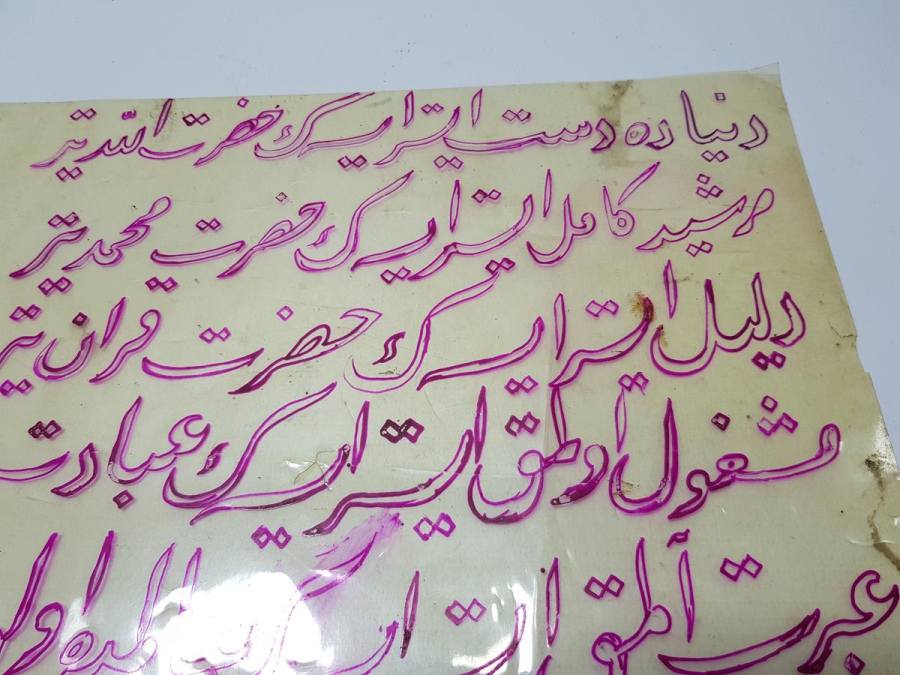 دنیاده دست ایستر ایسك حضرت الله یتر
مرشید كامل ایستر ایسك حضرت محمد یتر
دلیل ایستر ایسك حضرت قران یتر
مشغول اولمق ایستر ایسك عبادت
عبرت آلمق ایستر ایسك